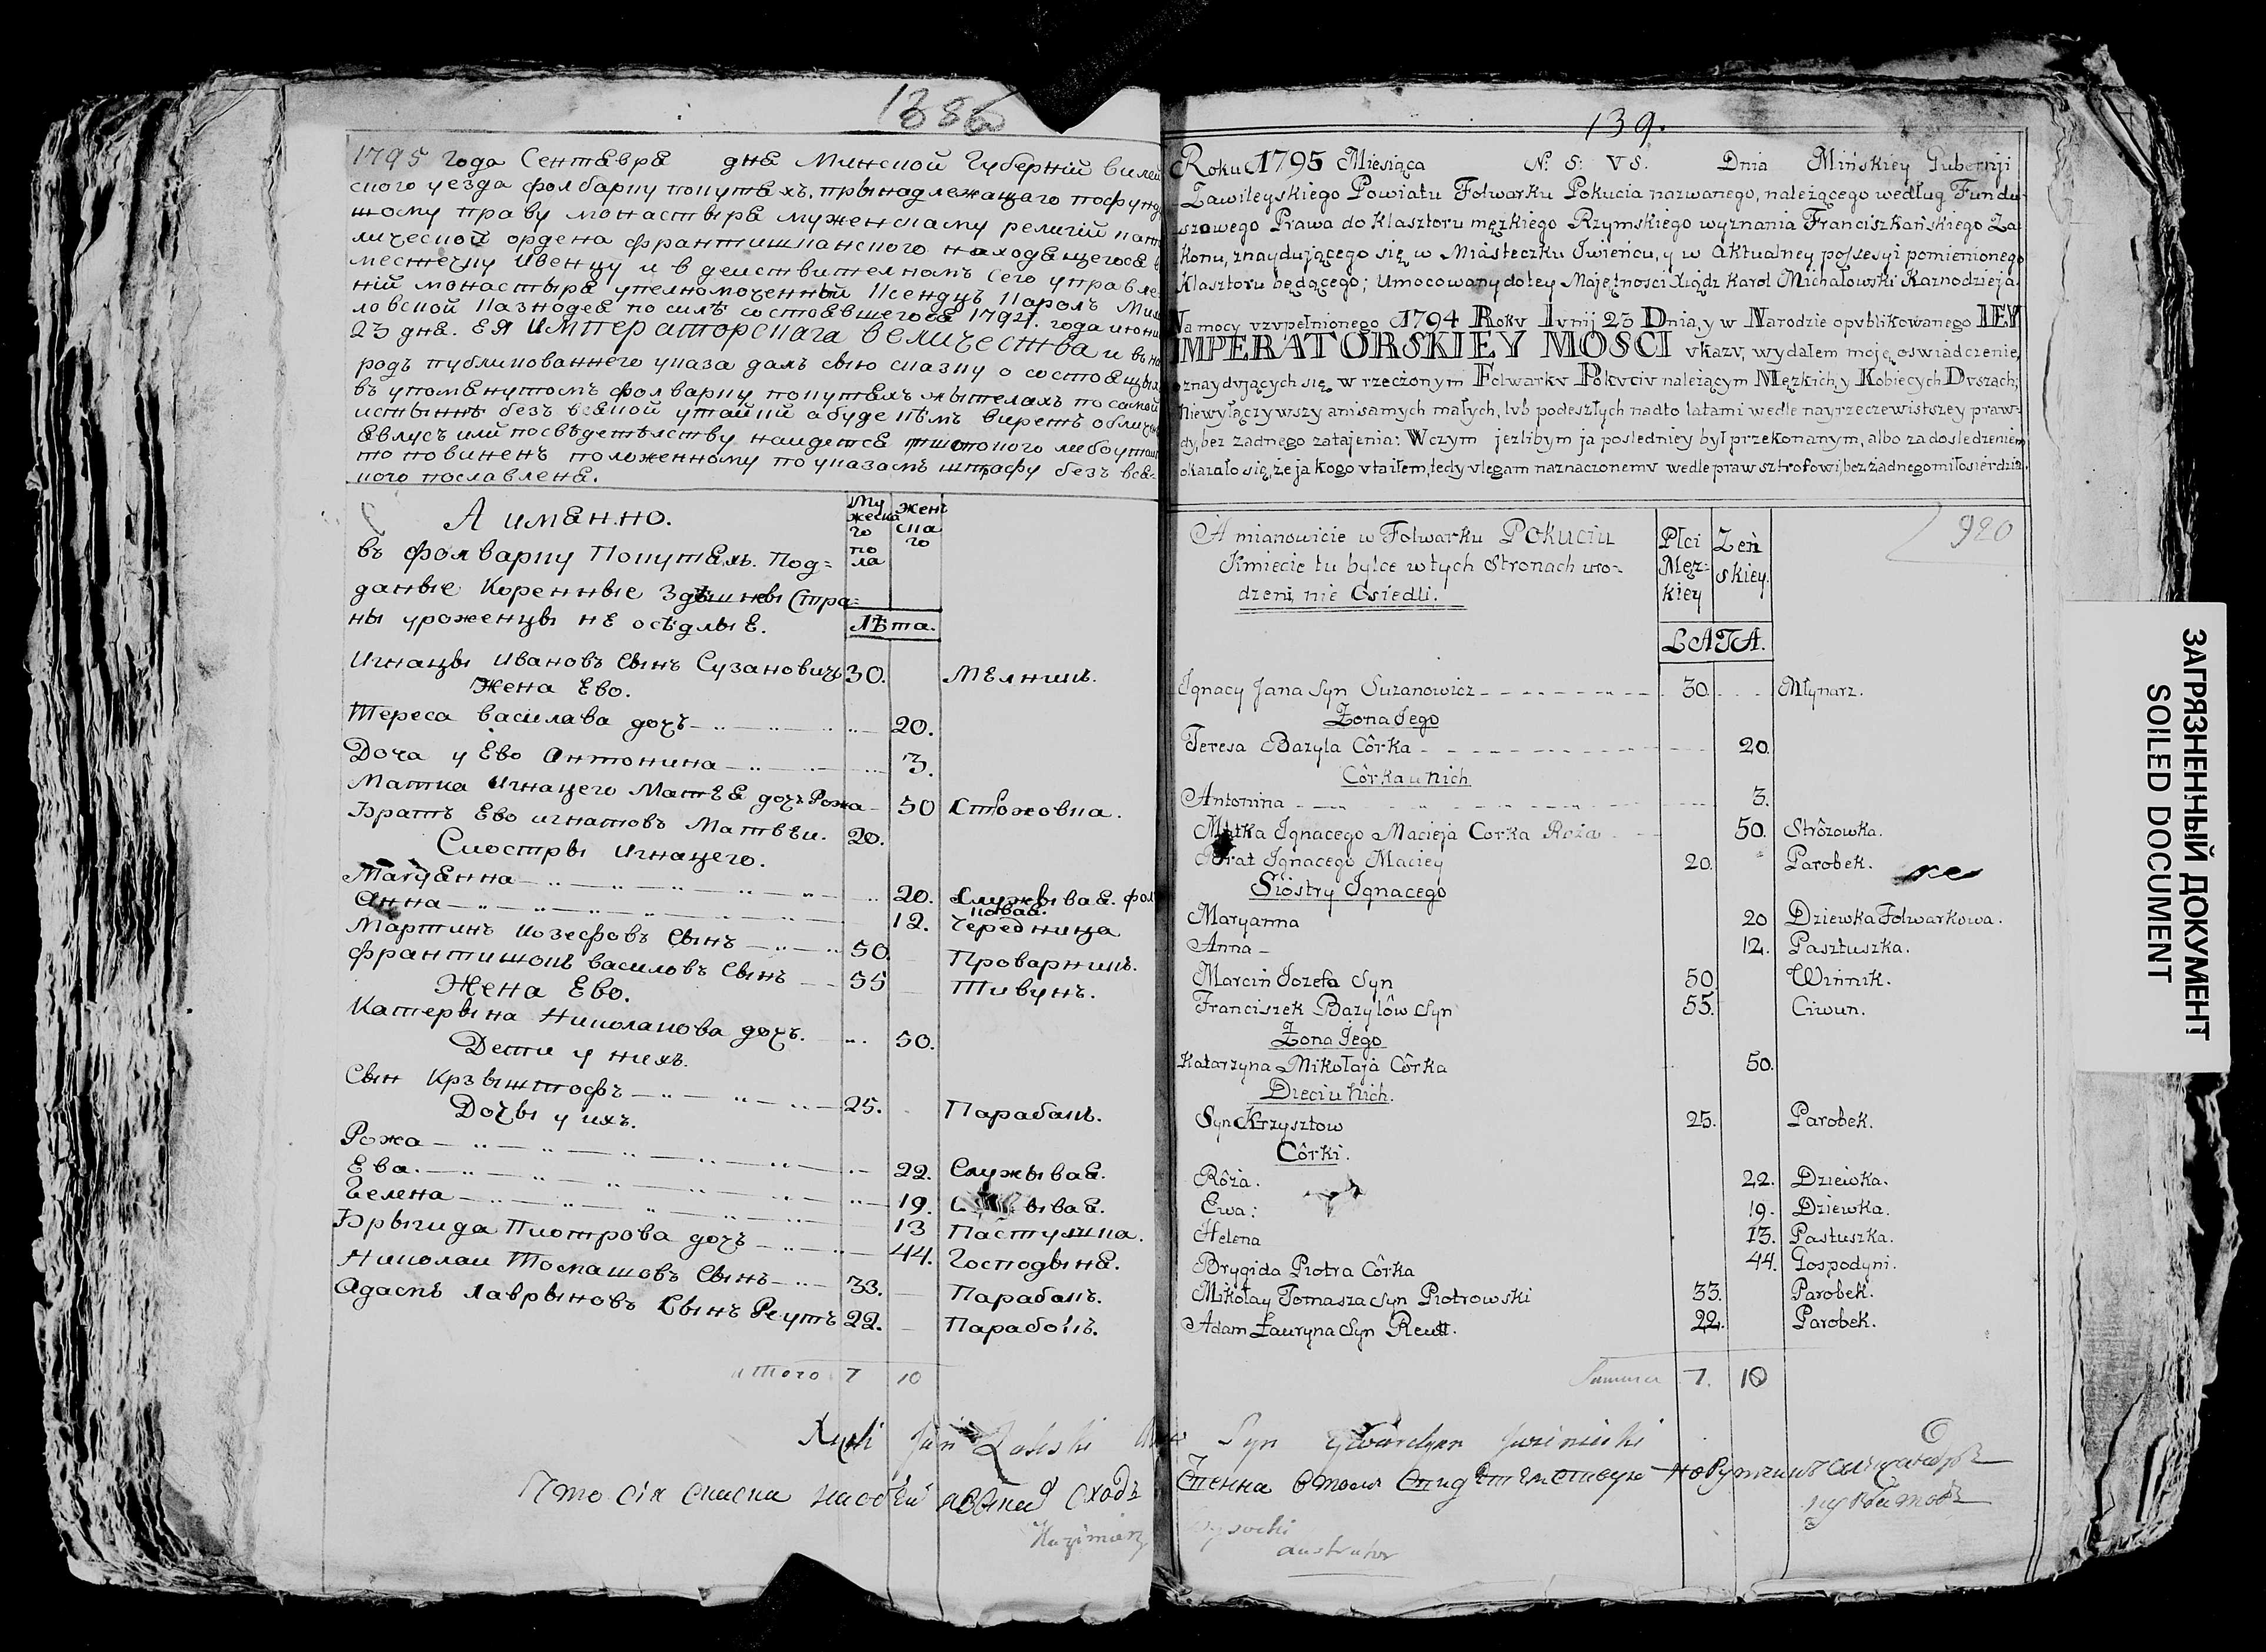 1795 года Сентѣвра дна Минской Губерній Вилей
ского уезда фолварку Покутѣхъ, прынадлежащаго пофунду
шому праву монастыра муженскаму религій като
лической ордена францишканского находѣщегосѣ в
местечку Ивенцу и в деиствителномъ сего управле
ній монастыра уполномоченный Ксендзъ Кароль Миха
ловской Казнодеѣ по силѣ состоѣвшегосѣ 1794. года июни
23 днѣ. Ея Императорскага величества и въ на
родъ публикованнего указа далъ сыю сказку о состоѣщыхъ
въ упомѣнутомъ фолварку Покутѣхъ жытелахъ по самой
истыннѣ безъ всѣкой утайкй а буде кѣмъ
то повиненъ положенному по указамъ штрафу безъ всѣ-
кого пославленѣ.
А имѣнно.
въ фолварку Покутѣхъ. Под=
даные Коренные Здѣшнеы Стра=
ны уроженцы не осѣдлые.
Му
жеска
го
по
ла
Жен
ска
го
Лѣта.
Игнацы Ивановъ Сынъ Сузановичъ 30. Мѣлникъ.
Жена Ево.
Тереса василава дочъ 20.
Доча у Ево Антонина 3.
Матка Игнацего Матѣѣ дочъ Рожа 50 Сторожовка.
Братъ Ево игнатовъ Матвѣи. 20.
Сиостры Игнацего.
Марѣанна 20. Служываѣ. фол
поваѣ.
Анна 12. Чередница
Мартинъ Иозефовъ Сынъ 50. Проварникъ.
Франтишокъ василовъ Сынъ 55 Тивунъ.
Жена Ево.
Катерына Николаиова дочъ. 50.
Дети у нихъ.
Сын Крзыштофъ 25. Парабакъ.
Дочы у ихъ.
Рожа 22. Служываѣ.
Ева. 19. С ываѣ.
Гелена 13 Пастушка.
Брыгида Пиотрова дочъ 44. Господынѣ.
Николаи Томашовъ Сынъ 33. Парабакъ.
Адамъ Лаврыновъ Сынъ Реутъ 22. Парабокъ.
итого 7 10
139.
Roku 1795 Miesiąca N: S: V S. Dnia Mińskiey Guberniji
Zawileyskiego Powiatu Folwarku Pokucia nazwanego, należącego według Fundu-
szowego Prawa do Klasztoru męzkiego Rzymskiego wyznania Franciszkańskiego Za-
konu, znaydującego się w Miásteczku Iwieńcu, y w Aktualney possesyi pomienionego
Klasztoru będącego; Umocowany do tey Majętnosci Xiądz Karol Michałowski Kaznodzieja.
Na mocy vzvpełnionego 1794 Rokv Ivnij 23 Dnia, y w Narodzie opvblikowanego IEY
IMPERATORSKIEY MOSCI vkazv, wydałem moję oswiadczenie,
o znaydvjących się w rzeczonym Folwarkv Pokvciv należącym Męzkich, y Kobiecych Dvszach;
Niewyłączywszy ani samych małych, lvb podeszłych nadto latami wedle nayrzeczewistszey praw-
dy, bez żadnego zatajenia: W czym jezlibym ja posledniey był przekonanym, albo za dosledzeniem
okazało się, że ja kogo vtaiłem, tedy vlegam naznaczonemv wedle praw sztrofowi, bez żadnego miłosierdzia.
920
A mianowicie w Folwarku Pokuciu
Kmiecie tu bylce w tych Stronach uro-
dzeni nie Osiedli.
Płci
Męz-
kiey
Zeń
skiey.
LATA.
Ignacy Jana Syn Suzanowicz 30. Młynarz.
Żona Jego
Teresa Bazyla Côrka 20.
Côrka u Nich
Antonina 3.
Matka Ignacego Macieja Corka Roża 50. Strôzowka.
Brat Ignacego Maciey 20. Parobek.
Siostry Ignacego
Maryanna 20 Dziewka Folwarkowa.
Anna 12. Pasztuszka.
Marcin Jozefa Syn 50. Winnik.
Franciszek Bazylôw Syn 55. Ciwun.
Żona Jego
Katarzyna Mikołaja Côrka 50.
Dzieci u Nich.
Syn Krzysztow 25. Parobek.
Côrki.
Rôża. 22. Dziewka.
Ewa: 19. Dziewka.
Helena 13. Pastuszka.
Brygida Piotra Côrka 44. Gospodyni.
Mikołay Tomasza Syn Piotrowski 33. Parobek.
Adam Ławryna Syn Reutt. 22. Parobek.
Summa 7. 10
Xiądz Jan Zaleski
Что сія скаска
Kazimierz Wysocki
ЗАГРЯЗНЕННЫЙ ДОКУМЕНТ
SOILED DOCUMENT